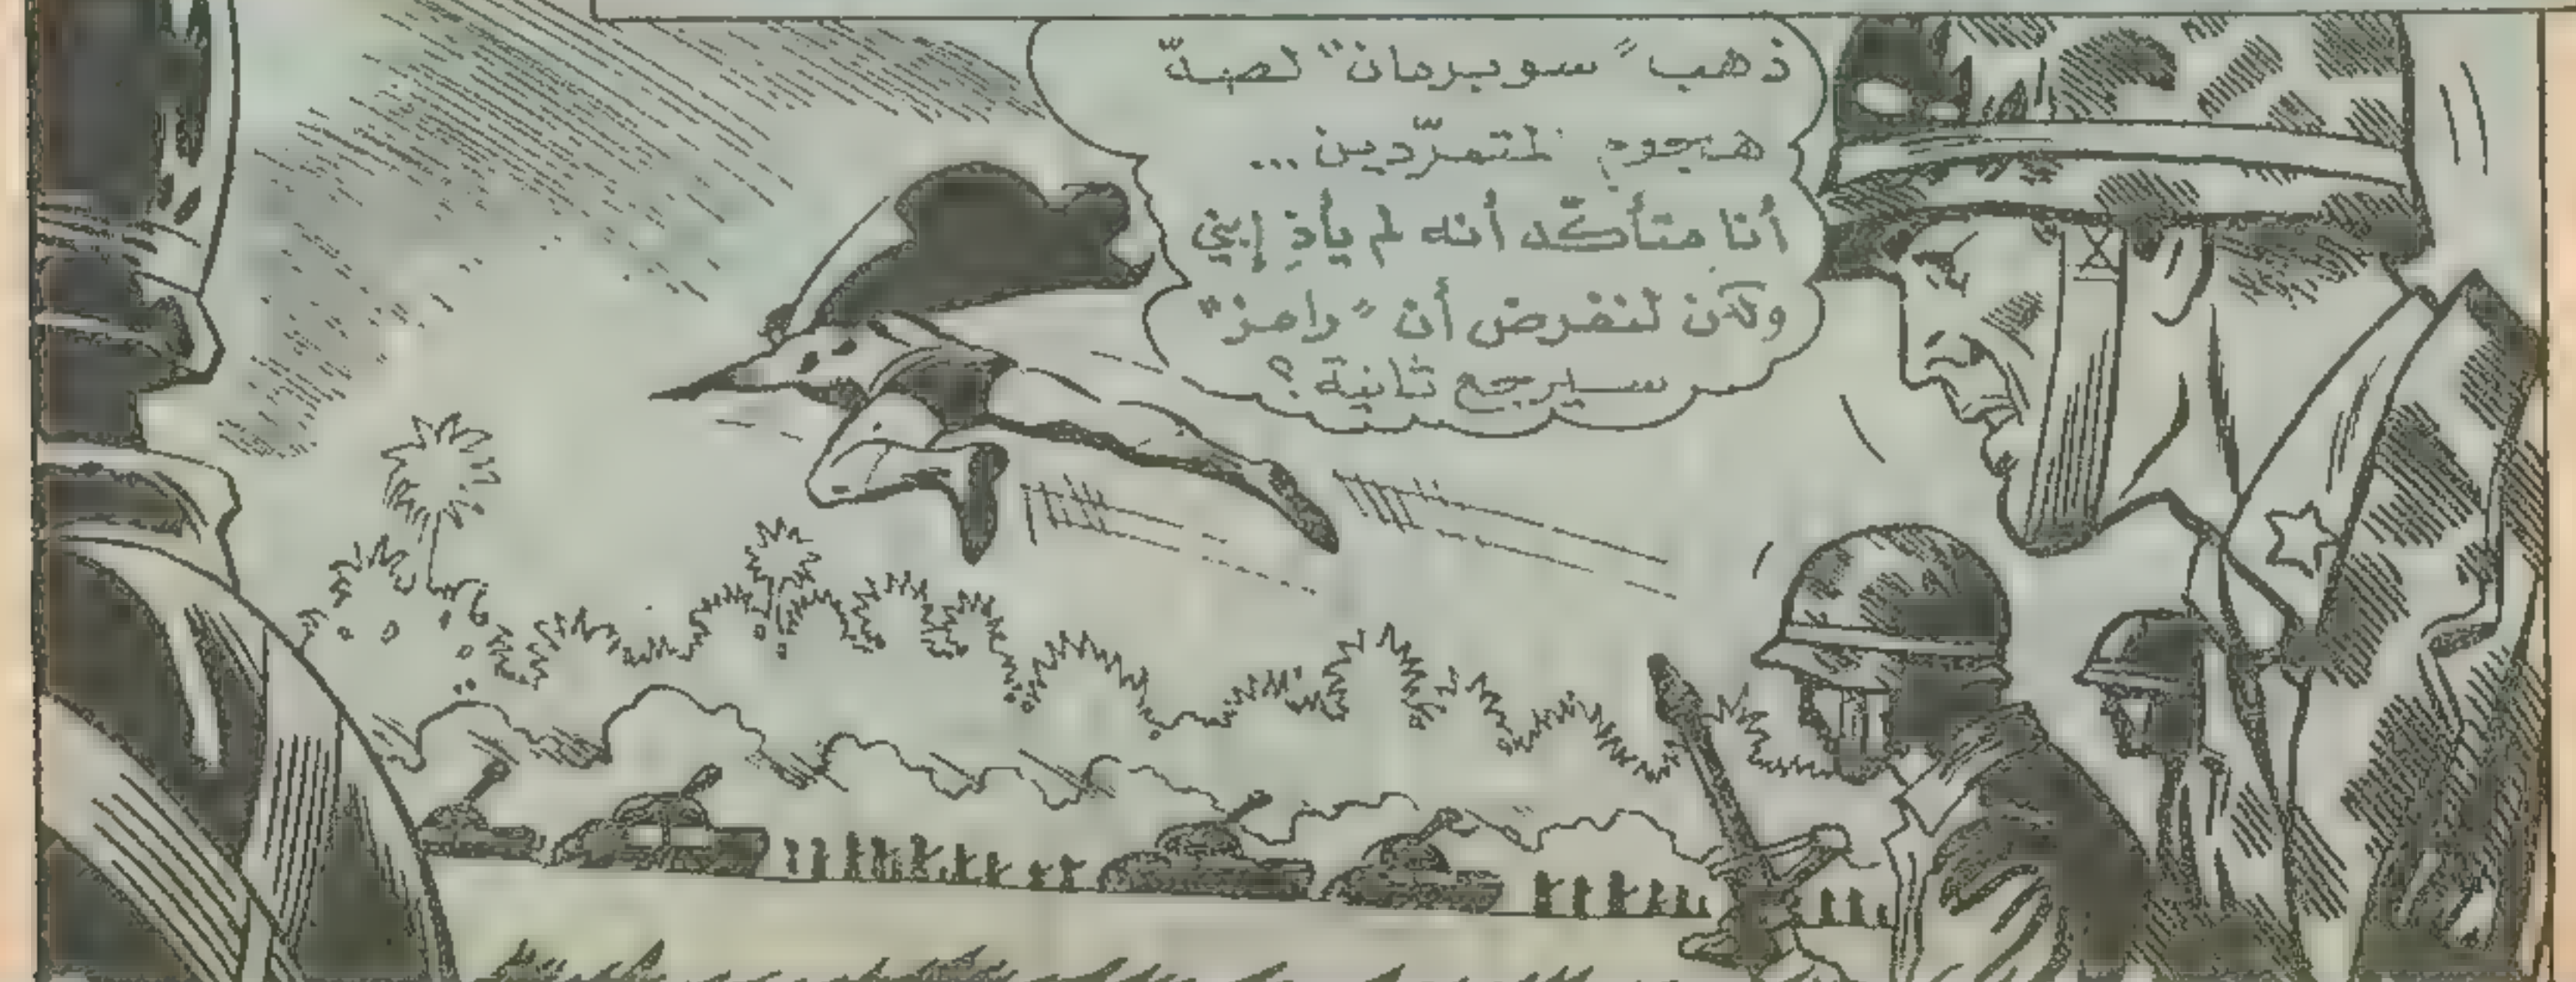 ذهب "سوبرمان" لصدّ
هجوم المتمرّدين...
أنا متأكّد أنه لم يأذِ إبني
ولكن لنفرض أن "رامز"
سيرجع ثانية؟